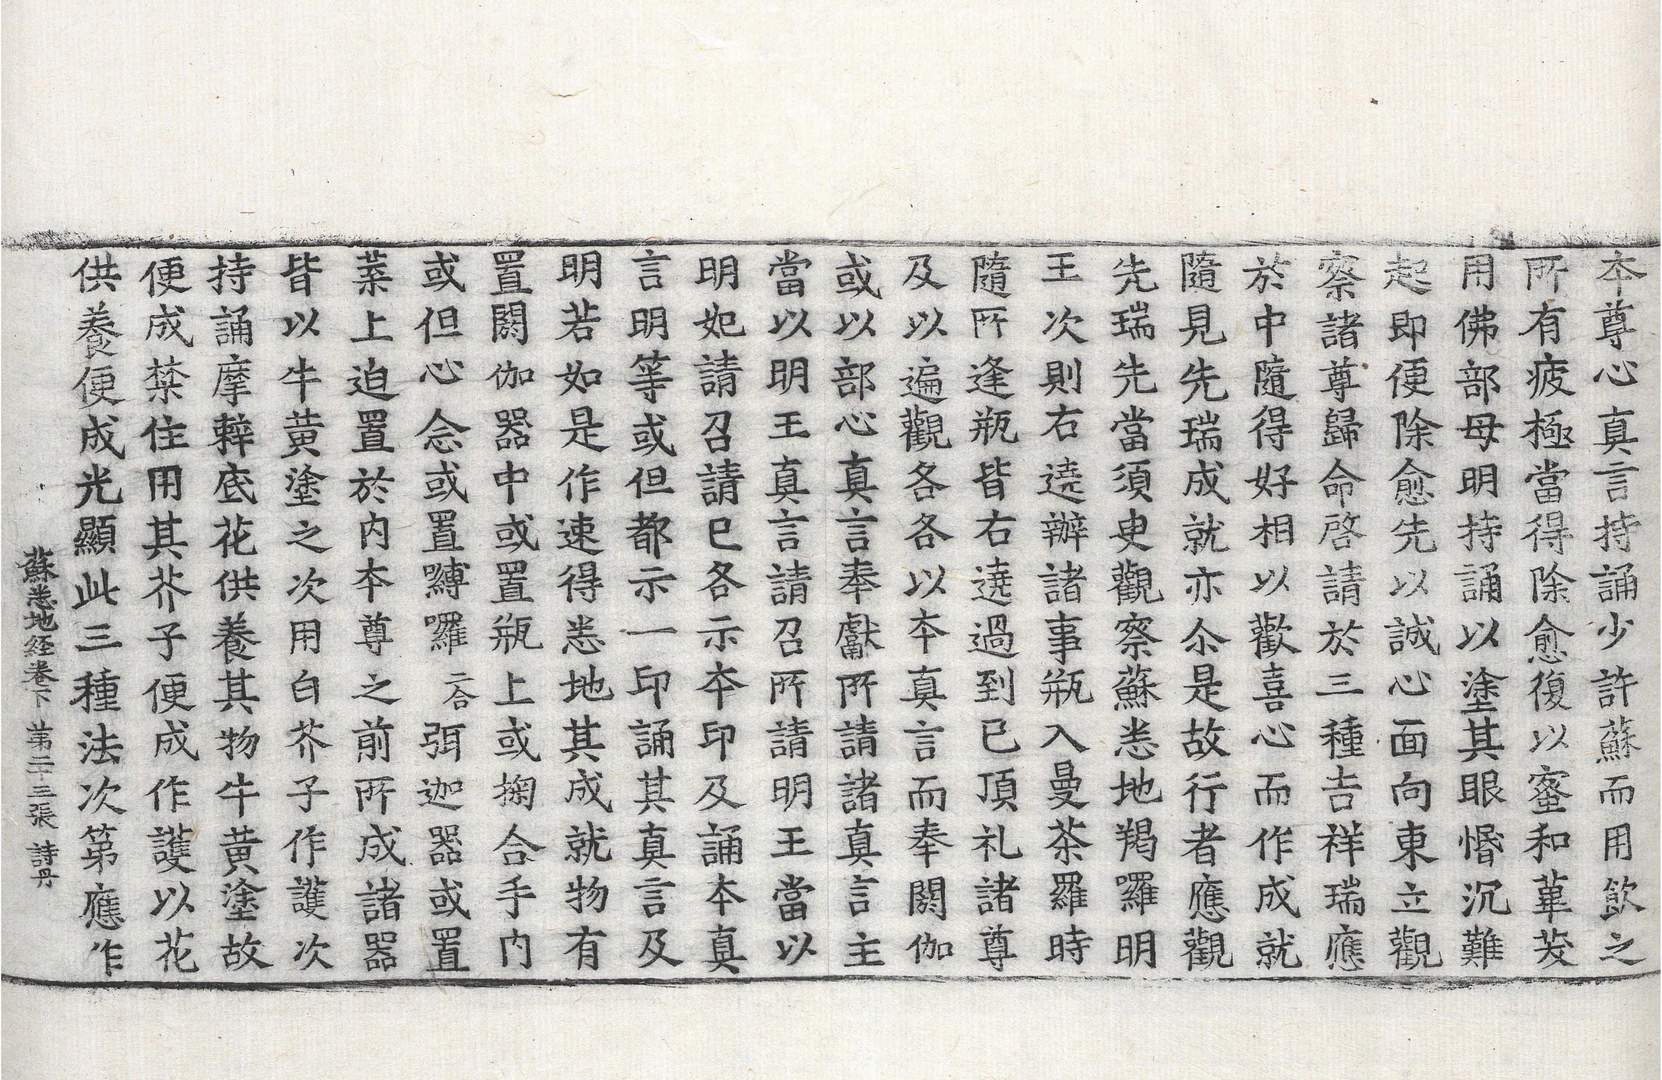 本尊心真言持誦少許蘇而用飲之
所有疲極當得除愈復以蜜和蓽茇
用佛部母明持誦以塗其眼惛沉難
起即便除愈先以誠心面向東立觀
察諸尊歸命啓請於三種吉祥瑞應
於中隨得好相以歡喜心而作成就
隨見先瑞成就亦尒是故行者應觀
先瑞先當須㕝觀察蘇悉地羯囉明
王次則右遶辦諸事瓶入曼茶羅時
隨所逢瓶皆右遶過到已頂礼諸尊
及以遍觀各各以本真言而奉閼伽
或以部心真言奉獻所請諸真言主
當以明王真言請召所請明王當以
明妃請召請已各示本印及誦本真
言明等或但都示一印誦其真言及
明若如是作速得悉地其成就物有
置閼伽器中或置瓶上或掬合手内
或但心念或置嚩囉二合弭迦器或置
葉上迫置於内本尊之前所成諸器
皆以牛黄塗之次用白芥子作護次
持誦摩𪏭底花供養其物牛黄塗故
便成禁住用其芥子便成作護以花
供養便成光顯此三種法次第應作
蘇悉地経卷下 第二十三張 詩丹